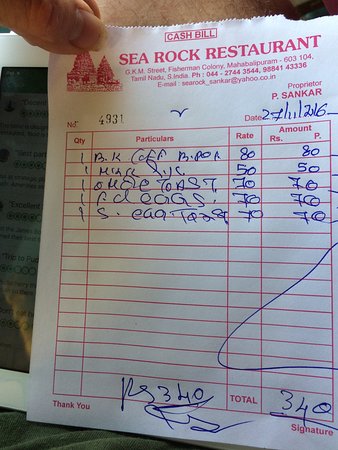 CASH BILL
SEA ROCK RESTAURANT
G.K.M. Street, Fisherman Colony, Mahabalipuram - 603 104,
Tamil Nadu, S.India. Ph : 044 - 2744 3544, 98841 43336
E-mail : searock_sankar@yahoo.co.in
Proprietor
P. SANKAR
No. 4931 Date 27/11/2016
Qty Particulars Rate Amount
Rs. P.
1 80 80
1 50 50
1 TOAST 70 70
1 EGGS 70 70
1 S. 70 70
Rs 340 TOTAL 340
Thank You Signature